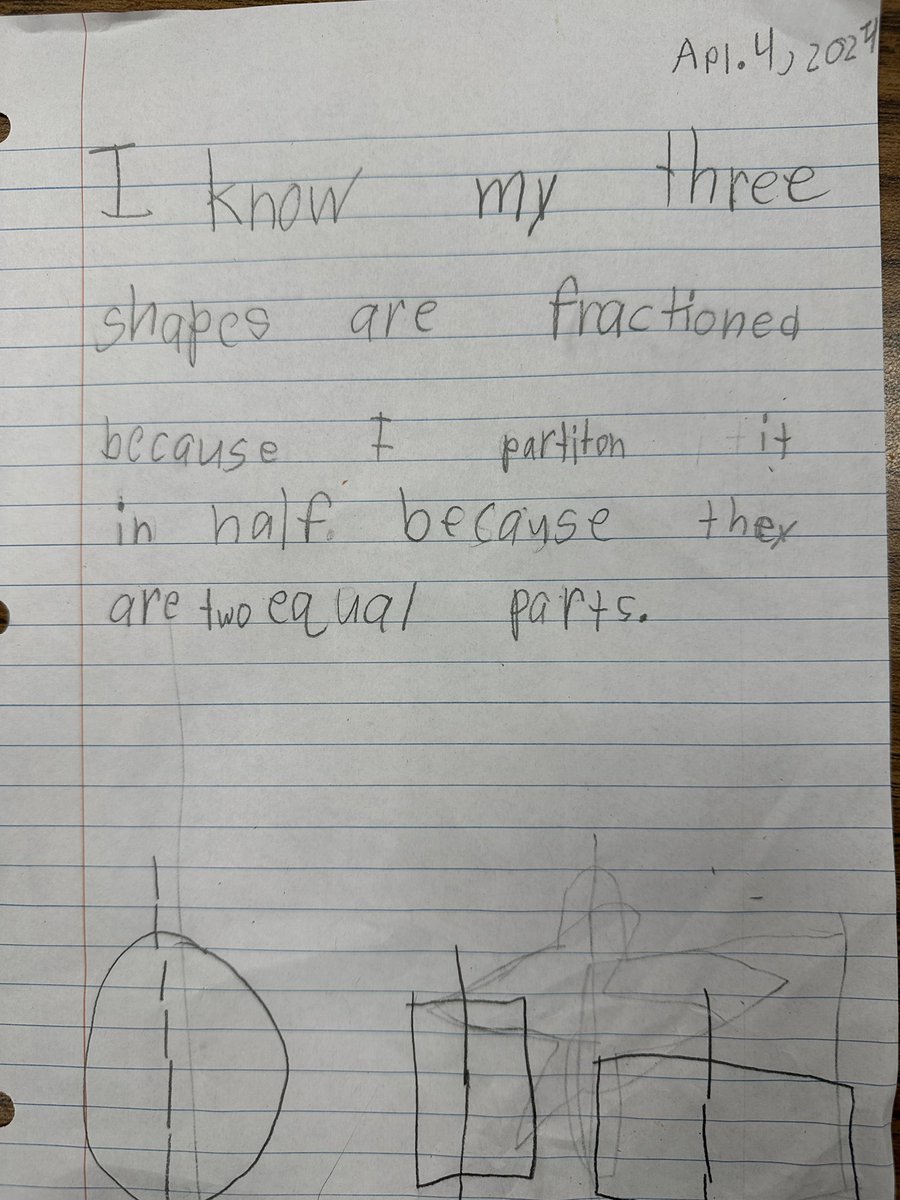 Apl. 4, 2024
I know my three
shapes are fractioned
because I partiton it
in half. because they
are two equal parts.